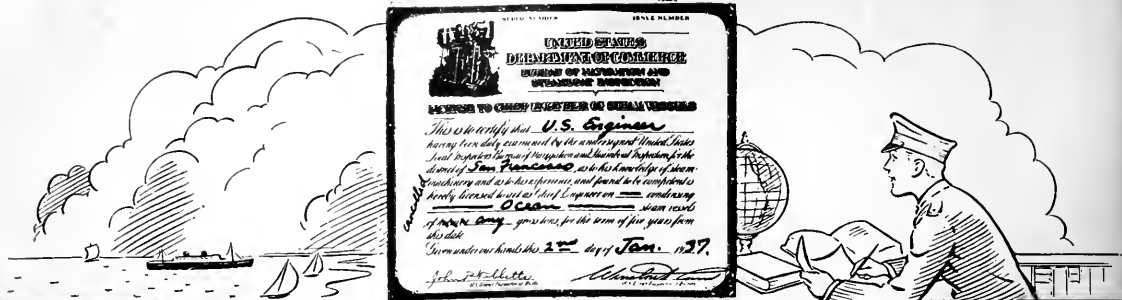 SERIAL NUMBER ISSUE NUMBER
UNITED STATES
DEPARTMENT OF COMMERCE
BUREAU OF NAVIGATION AND
STEAMBOAT INSPECTION
LICENSE TO CHIEF ENGINEER OF STEAM VESSELS
This is to certify that U.S. Engineer
having been duly examined by the undersigned United States
Local Inspectors Bureau of Navigation and Steamboat Inspection, for the
district of San Francisco, as to his knowledge of steam
machinery and as to his experience, and found to be competent is
hereby licensed to act as Chief Engineer on condensing
Ocean steam vessels
of any gross tons, for the term of five years from
this date.
Given under our hands this 2nd day of Jan. 1937.
cancelled
John